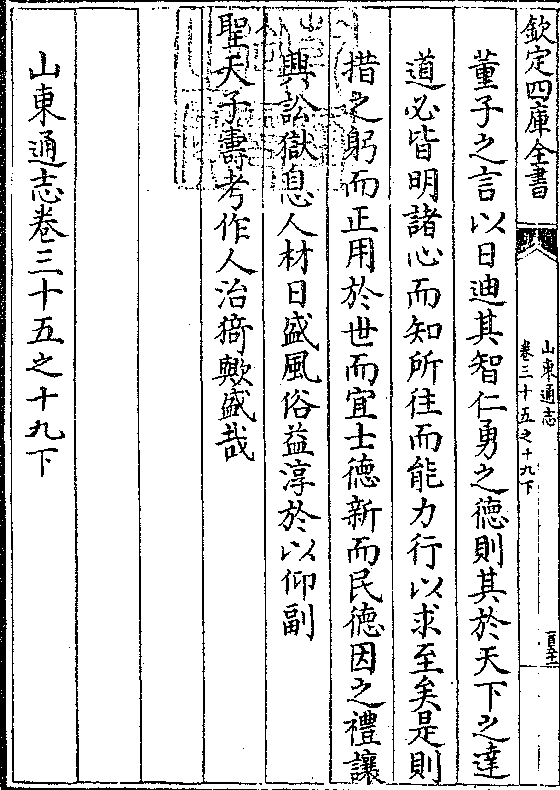 欽定四庫全書
山東通志
卷三十五之十九下
董子之言以日迪其智仁勇之德則其於天下之達
道必皆明諸心而知所往而能力行以求至矣是則
措之躬而正用於世而宜士德新而民德因之禮讓
興訟獄息人材日盛風俗益淳於以仰副
聖天子壽考作人治猗歟盛哉
山東通志卷三十五之十九下